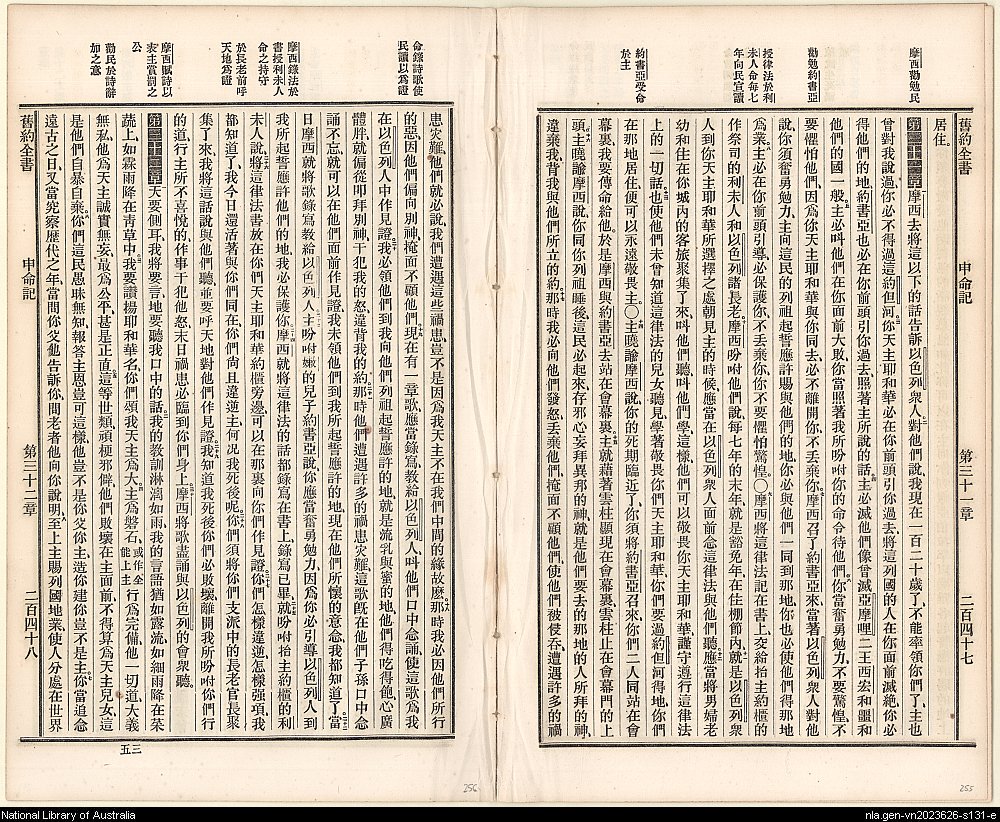 摩西勸勉民
勸勉約書亞
授律法於利
未人命每七
年向民宣讀
約書亞受命
於主
舊約全書 申命記 第三十一章 二百四十七
居住。
第三十一章 摩西去將這以下的話告訴以色列衆人、對他們說、我現在一百二十歲了、不能率領你們了、主也
曾對我說過、你必不得過這約但河、你天主耶和華必在你前頭引你過去、將這列國的人在你面前滅絕、你必
得他們的地、約書亞也必在你前頭引你過去、照著主所說的話、主必滅他們、像曾滅亞摩哩二王西宏和噩和
他們的國一般、主必叫他們在你面前大敗、你當照著我所吩咐你的命令待他們、你當奮勇勉力、不要驚惶、不
要懼怕他們、因爲你天主耶和華與你同去、必不離開你、不丟棄你、摩西召了約書亞來、當著以色列衆人對他
說、你須奮勇勉力、主向這民的列祖起誓應許賜與他們的地、你必與他們一同到那地、你也必使他們得那地
爲業、主必在你前頭引導、必保護你、不丟棄你、你不要懼怕驚惶、○摩西將這律法記在書上、交給抬主約櫃的
作祭司的利未人、和以色列諸長老、摩西吩咐他們說、每七年的末年、就是豁免年、在住棚節內、就是以色列衆
人到你天主耶和華所選擇之處朝見主的時候、應當在以色列衆人面前念這律法與他們聽、應當將男婦老
幼和住在你城內的客旅聚集了來、叫他們聽、叫他們學、這樣、他們可以敬畏你天主耶和華、謹守遵行這律法
上的一切話、也使他們未曾知道這律法的兒女聽見、學著敬畏你們天主耶和華、你們要過約但河得地、你們
在那地居住、便可以永遠敬畏主、○主曉諭摩西說、你的死期臨近了、你須將約書亞召來、你們二人同站在會
幕裏、我要傳命給他、於是摩西與約書亞去站在會幕裏、主就藉著雲柱顯現在會幕裏、雲柱止在會幕門的上
頭、主曉諭摩西說、你同你列祖睡後、這民必起來存邪心妄拜異邦的神、就是他們要去的那地的人所拜的神、
違棄我、背我與他們所立的約、那時我必向他們發怒、丟棄他們、掩面不顧他們、使他們被侵吞、遭遇許多的禍
255
命錄詩歌使
民讀以爲證
摩西錄法於
書授利未人
命之持守
於長老前呼
天地爲證
摩西賦詩以
表主賞罰之
公
勸民於詩辭
加之意
患災難、他們就必說、我們遭遇這些禍患、豈不是因爲我天主不在我們中間的緣故麽、那時我必因他們所行
的惡、因他們偏向別神、掩面不顧他們、現在有一章歌、應當錄寫教給以色列人、叫他們口中念誦、使這歌爲我
在以色列人中作見證、我必領他們到我向他們列祖起誓應許的地、就是流乳與蜜的地、他們得吃得飽、心廣
體胖、就偏從叩拜別神、干犯我的怒、違背我的約、那時他們遭遇許多的禍患災難、這歌旣在他們子孫口中念
誦不忘、就可以在他們面前作見證、我未領他們到我所起誓應許的地、現在他們所懷的意念、我都知道了、當
日摩西就將歌錄寫教給以色列人、主吩咐嫩的兒子約書亞說、你應當奮勇勉力、因爲你必引導以色列人到
我所起誓應許他們的地、我必保護你、摩西就將這律法的話都錄寫在書上、錄寫已畢、就吩咐抬主約櫃的利
未人說、將這律法書放在你們天主耶和華約櫃旁邊、可以在那裏向你們作見證、你們怎樣違逆、怎樣强項、我
都知道了、我今日還活著與你們同在、你們尙且違逆主、何况我死後呢、你們須將你們支派中的長老官長聚
集了來、我將這話說與他們聽、並要呼天地對他們作見證、我知道我死後、你們必敗壞、離開我所吩咐你們行
的道、行主所不喜悅的、作事干犯他怒、末日禍患必臨到你們身上、摩西將歌盡誦與以色列的會衆聽。
第三十二章 天要側耳、我將要言、地要聽我口中的話、我的教訓淋漓如雨、我的言語猶如露流、如細雨降在菜
蔬上、如霖雨降在靑草中、我要讚揚耶和華名、你們頌我天主爲大、主爲磐石、或作全能上主 行爲完備、他一切道大義
無私、他爲天主、誠實無妄、最爲公平、甚是正直、這等世類、頑梗邪僻、他們敗壞、在主面前、不得算爲天主兒女、這
是他們自暴自棄、你們這民、愚昧無知、報答主恩、豈可這樣、他豈不是你父、你主、造你建你、豈不是主、你當追念
遠古之日、又當究察歷代之年、當問你父、他告訴你、問老者、他向你說明、至上主賜列國地業、使人分處在世界
舊約全書 申命記 第三十二章 二百四十八
三五
256
National Library of Australia
nla.gen-vn2023626-s131-e